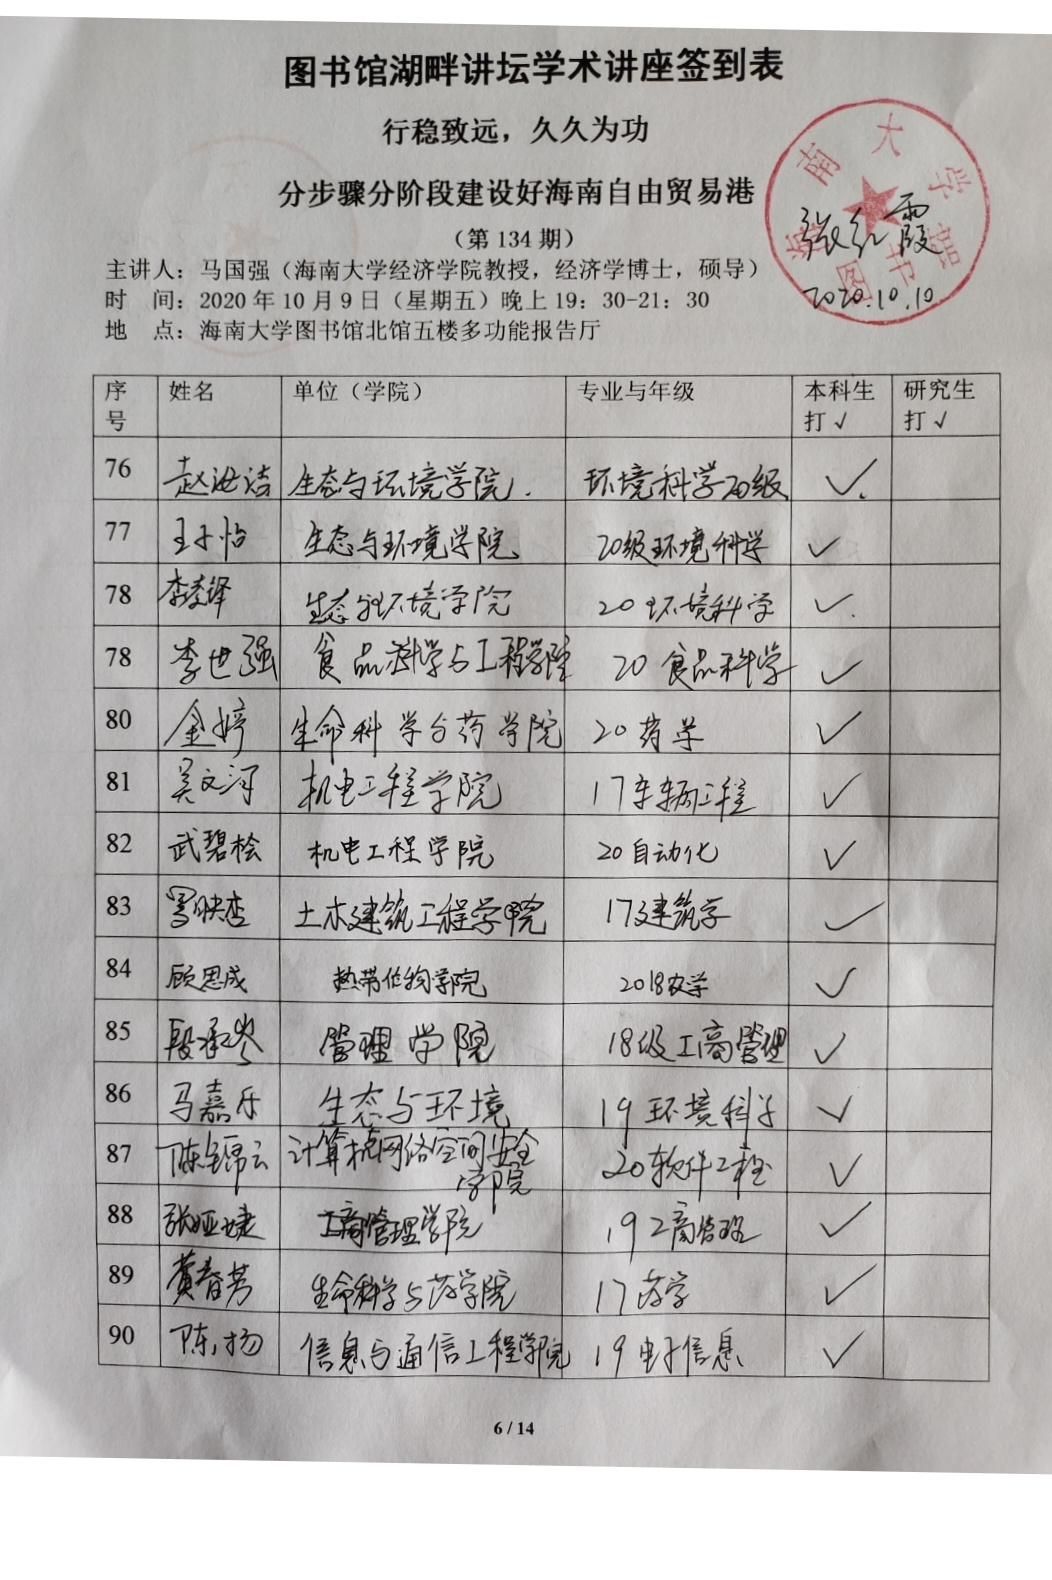 图书馆湖畔讲坛学术讲座签到表
行稳致远，久久为功
分步骤分阶段建设好海南自由贸易港
（第 134 期）
主讲人：马国强（海南大学经济学院教授，经济学博士，硕导）
时 间：2020 年 10 月 9 日（星期五）晚上 19：30-21：30
地 点：海南大学图书馆北馆五楼多功能报告厅
海南大学图书馆
张红霞
2020.10.10
序号 姓名 单位（学院） 专业与年级 本科生打√ 研究生打√
76 赵海洁 生态与环境学院. 环境科学20级 ✓
77 王子怡 生态与环境学院 20级环境科学 ✓
78 生态与环境学院 20环境科学 ✓
78 李世强 食品科学与工程学院 20食品科学 ✓
80 金婷 生命科学与药学院 20药学 ✓
81 吴文河 机电工程学院 17车辆工程 ✓
82 武碧桧 机电工程学院 20自动化 ✓
83 土木建筑工程学院 17建筑学 ✓
84 顾思成 热带作物学院 2018农学 ✓
85 段承岑 管理学院 18级工商管理 ✓
86 马嘉乐 生态与环境 19环境科学 ✓
87 陈锦云 计算机网络空间安全学院 20软件工程 ✓
88 张娅婕 工商管理学院 19工商管理 ✓
89 黄春芳 生命科学与药学院 17药学 ✓
90 陈扬 信息与通信工程学院 19电子信息 ✓
6 / 14